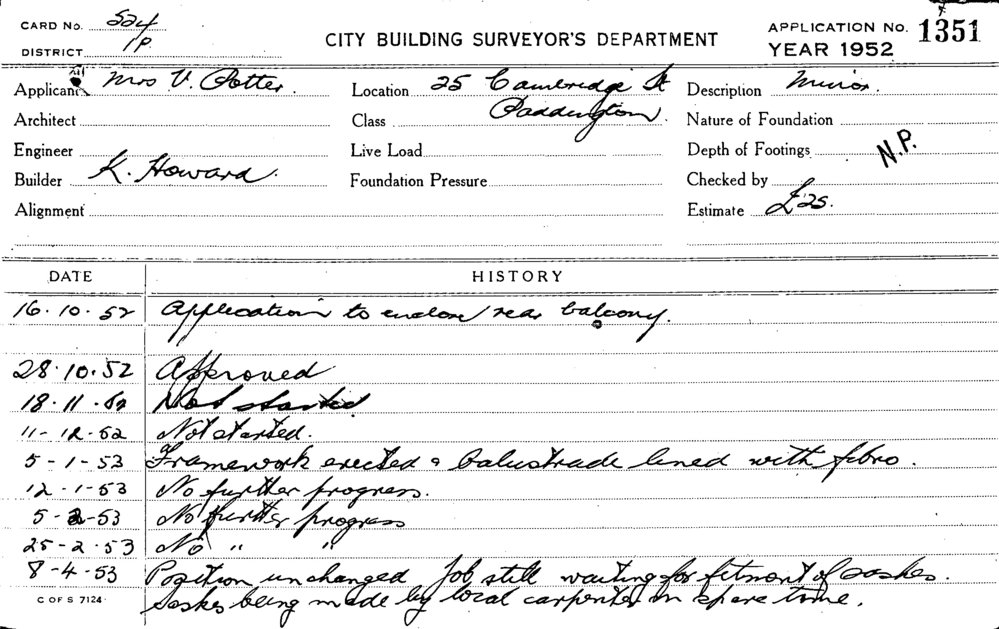 CARD NO. 524
DISTRICT 1P.
CITY BUILDING SURVEYOR'S DEPARTMENT
APPLICATION NO. 1351
YEAR 1952
Applicant Mrs V. Potter.
Location 25 Cambridge St
Paddington.
Description Minor.
Architect
Class
Nature of Foundation
Engineer
Live Load
Depth of Footings
N.P.
Builder K. Howard.
Foundation Pressure
Checked by
Alignment
Estimate £25.
DATE HISTORY
16.10.52 Application to enclose rear balcony.
28.10.52 Approved
18.11.52 Not started
11-12.52 Not started.
5-1-53 Framework erected & balustrade lined with fibro.
12-1-53 No further progress.
5-2-53 No further progress
25-2-53 No " "
8-4-53 Position unchanged Job still waiting for fitment of sashes.
Sashes being made by local carpenter in spare time.
C OF S 7124